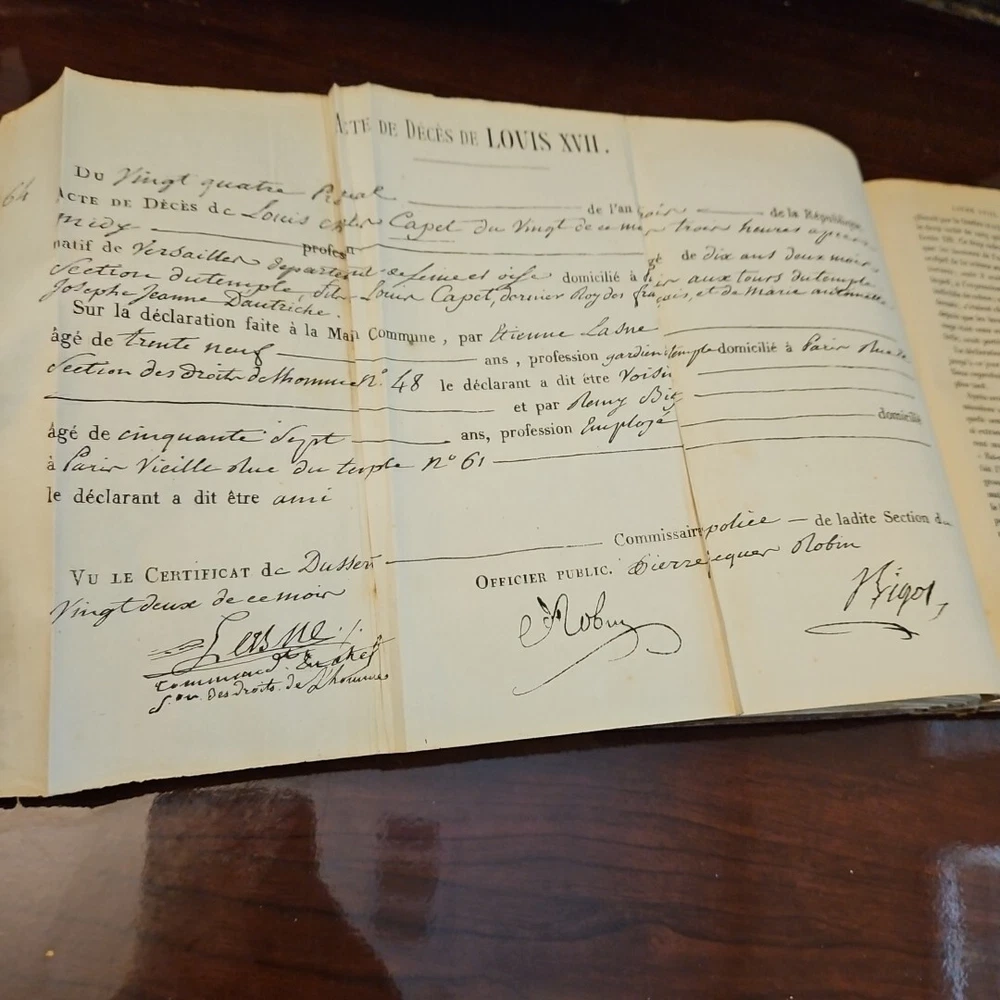 ACTE DE DÉCÈS DE LOUIS XVII.
64
Du Vingt quatre Prairial de l'an trois de la République.
ACTE DE DÉCÈS de Louis Charles Capet du Vingt de ce mois trois heures après
midy profession âgé de dix ans deux mois
natif de Versailles departement de seine et oise domicilié à Paris aux tours du temple
Section du temple, fils de Louis Capet, dernier Roy des français, et de Marie antoinette
Josephe Jeanne Dautriche.
Sur la déclaration faite à la Maison Commune, par Etienne Lasne
âgé de trente neuf ans, profession gardien temple domicilié à Paris Rue et
Section des droits de lhomme n° 48 le déclarant a dit être Voisin
et par Remy Bigot
âgé de cinquante Sept ans, profession Employé domicilié
à Paris Vieille Rue du temple n° 61
le déclarant a dit être ami
Vu le Certificat de Dussert Commissaire police de ladite Section du
Vingt deux de ce mois OFFICIER PUBLIC. Pierre jacques Robin
Lasne Robin Bigot
command.t En chef
s.on des droits de L'homme